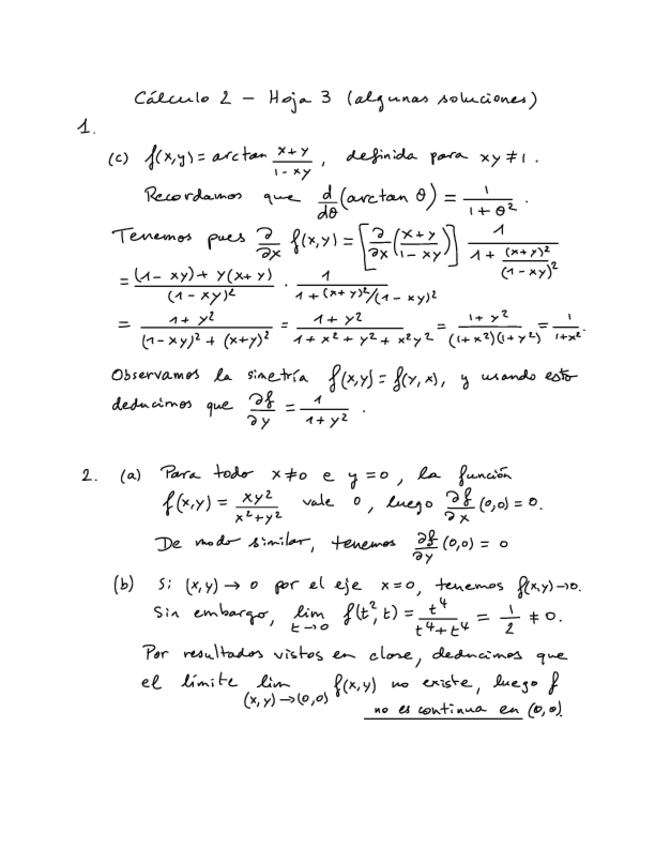 Cálculo 2 – Hoja 3 (algunas soluciones)
1.
(c) f(x,y) = arctan (x+y)/(1-xy), definida para xy ≠ 1.
Recordamos que d/dθ (arctan θ) = 1/(1+θ²).
Tenemos pues ∂/∂x f(x,y) = [∂/∂x ((x+y)/(1-xy))] 1/(1 + (x+y)²/(1-xy)²)
= ((1-xy) + y(x+y))/(1-xy)² · 1/(1+(x+y)²/(1-xy)²)
= (1+y²)/((1-xy)² + (x+y)²) = (1+y²)/(1+x²+y²+x²y²) = (1+y²)/((1+x²)(1+y²)) = 1/(1+x²).
Observamos la simetría f(x,y) = f(y,x), y usando esto
deducimos que ∂f/∂y = 1/(1+y²).
2. (a) Para todo x≠0 e y=0, la función
f(x,y) = xy²/(x²+y²) vale 0, luego ∂f/∂x (0,0) = 0.
De modo similar, tenemos ∂f/∂y (0,0) = 0
(b) Si (x,y) → 0 por el eje x=0, tenemos f(x,y)→0.
Sin embargo, lim t→0 f(t²,t) = t⁴/(t⁴+t⁴) = 1/2 ≠ 0.
Por resultados vistos en clase, deducimos que
el límite lim (x,y)→(0,0) f(x,y) no existe, luego f
no es continua en (0,0)